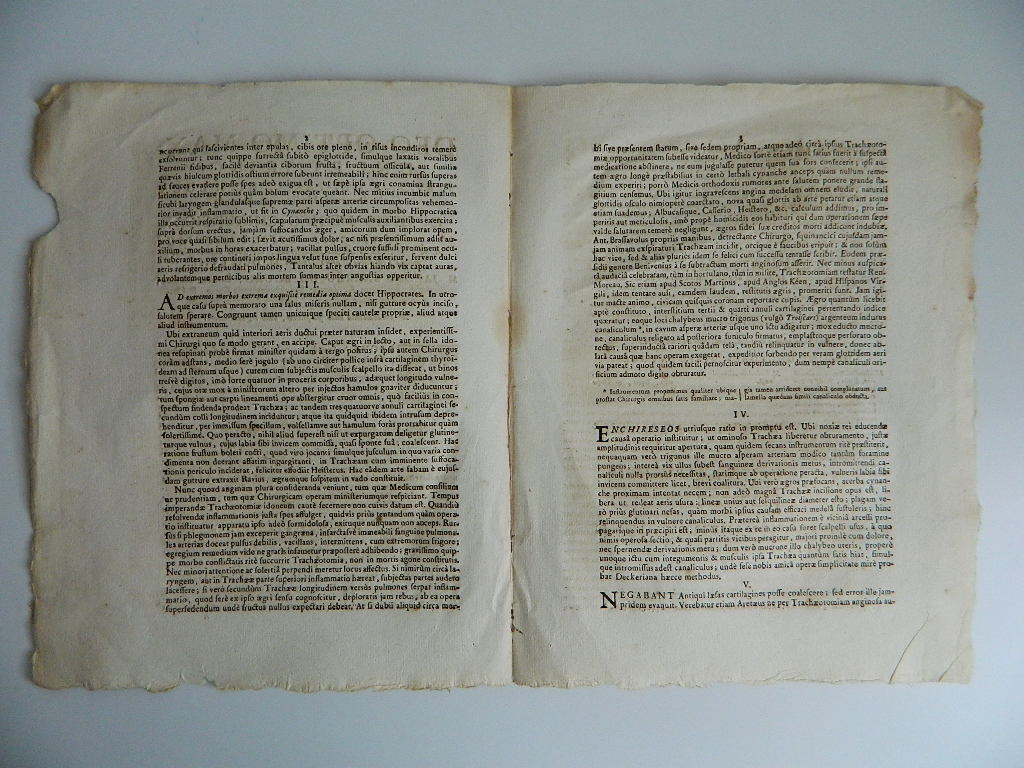 2
ncurrunt qui lascivientes inter epulas, cibis ore pleno, in risus inconditos temerè
exsolvuntur; tunc quippe surrectâ subitò epiglotide, simulque laxatis vocalibus
Ferrenii fidibus, facilè deviantia ciborum frusta, fructuum ossicula, aut similia
quævis hiulcum glottidis ostium errore subeunt irremeabili; hinc enim rursus superas
ad fauces evadere posse spes adeò exigua est, ut sæpè ipsa ægri conamina strangu-
lationem celerare potiùs quàm bolum evocate queant. Nec mitiùs incumbit malum
sicubi laryngem glandulasque supremæ parti asperæ arteriæ circumpositas vehemen-
tior invadit inflammatio, ut fit in Cynanche; quo quidem in morbo Hippocratica
illa occurrit respiratio sublimis, scapularum præcipuè musculis auxiliantibus exercita;
suprà dorsum erectus, jamjàm suffocandus æger, amicorum dum implorat opem,
pro voce quasi sibilum edit, sævit acutissimus dolor; ac nisi præsentissimum adsit au-
xilium, morbus in horas exacerbatur; vacillat pulsus, cruore suffusi prominent ocu-
li tuberantes, ore contineri impos lingua velut fune suspensis exseritur, fervent dulci
aeris refrigerio defraudati pulmones, Tantalus aster obvias hiando vix captat auras,
advolantemque pernicibus alis mortem summas inter angustias opperitur.
III.
AD extremos morbos extrema exquisitè remedia optima docet Hippocrates. In utro-
que casu suprà memorato una salus miseris nullam, nisi gutture ocyùs inciso,
salutem sperare. Congruunt tamen unicuique speciei cautelæ propriæ, aliud atque
aliud instrumentum.
Ubi extraneum quid interiori aeris ductui præter naturam insidet, experientissi-
mi Chirurgi quo se modo gerant, en accipe. Caput ægri in lecto, aut in sella ido-
nea resupinati probè firmat minister quidam à tergo positus; ipsa autem Chirurgus
coràm adstans, medio serè jugulo (ab uno circiter pollice infrà cartilaginem thyroi-
deam ad sternum usque) cutem cum subjectis musculis scalpello ita dissecat, ut binos
tresve digitos, imò fortè quatuor in proceris corporibus, adæquet longitudo vulne-
ris, cujus oræ mox à ministrorum altero per injectos hamulos graviter diducuntur;
tum spongiâ aut carpti lineamenti ope abstergitur cruor omnis, quò faciliùs in con-
spectum findenda prodeat Trachæa; ac tandem tres quatuorve annuli cartilaginei se-
cundùm colli longitudinem inciduntur; atque ita quidquid ibidem intrusum depre-
henditur, per immissum specillum, volsellamve aut hamulum foràs protrahitur quàm
solertissimè. Quo peracto, nihil aliud superest nisi ut expurgatum deligetur glutine-
turque vulnus, cujus labia sibi invicem commissa, quasi sponte suâ, coalescent. Hac
ratione frustum boleti cocti, quod viro jocanti simulque jusculum in quo varia con-
dimenta non deerant affatim ingurgitanti, in Trachæam cum imminente suffoca-
tionis periculo inciderat, feliciter effodit Heisterus. Hac eâdem arte fabam è cujus-
dam gutture extraxit Ravius, ægrumque sospitem in vado constituit.
Nunc quoad anginam plura consideranda veniunt, tum quæ Medicum consilium
ac prudentiam, tum quæ Chirurgicam operam ministeriumque respiciant. Tempus
imperandæ Trachæotomiæ idoneum cautè secernere non cuivis datum est. Quandiù
resolvendæ inflammationis justa spes affulget, quidvis priùs tentandum quàm opera-
tio instituatur apparatu ipso adeò formidolosa, exituque nunquam non anceps. Rur-
sùs si phlegmonem jam exceperit gangræna, infarctasve immeabili sanguine pulmona-
les arterias doceat pulsus debilis, vacillans, intermittens, cum extremorum frigore;
egregium remedium vide ne gratìs infametur præposterè adhibendo; gravissimo quip-
pe morbo conflictatis ritè succurrit Trachæotomia, non in mortis agone constitutis.
Nec minori attentione ac solertiâ perpendi meretur locus affectus. Si nimirùm circà la-
ryngem, aut in Trachææ parte superiori inflammatio hæreat, subjectas partes audeto
lacessere; si verò secundùm Trachææ longitudinem versùs pulmones serpat inflam-
matio, quod ferè ex ipso ægri sensu cognoscitur, deploratis jam rebus, ab ea opera
supersedendum undè fructus nullus expectari debeat. At si dubii aliquid circa mor-
3
bi sive præsentem statum, sive sedem propriam, atque adeò circà ipsius Trachæoto-
miæ opportunitatem subesse videatur, Medico fortè etiam tunc satius fuerit à suspectâ
medicatione abstinere, ne eum jugulasse putetur quem sua sors confecerit; ipsi au-
tem ægro longè præstabilius in certo lethali cynanche anceps quàm nullum reme-
dium experiri; porrò Medicis orthodoxis rumores ante salutem ponere grande sta-
gitium censemus. Ubi igitur ingravescens angina medelam omnem eludit, naturali
glottidis osculo nimioperè coarctato, nova quasi glottis ab arte petatur etiam atque
etiam suademus; Albucasisque, Casserio, Heistero, &c. calculum addimus, pro im-
peritis aut meticulosis, imò propè homicidis eos habituri qui dum operationem sæpe
valde salutarem temerè negligunt, ægros fidei suæ creditos morti addicunt indubiæ.
Ant. Brassavolus propriis manibus, detrectante Chirurgo, squinancici cujusdam jam-
jam animam exspiraturi Trachæam incidit, orcique è faucibus eripuit; & non solùm
hac vice, sed & aliàs pluries idem se felici cum successu tentasse scribit. Eodem præ-
sidii genere Benivenius à se subtractum morti anginosum asserit. Nec minùs auspica-
tâ audaciâ celebratam, tùm in hortulano, tùm in milite, Trachæotomiam testatur Ren.
Moreau. Sic etiam apud Scotos Martinus, apud Anglos Kéen, apud Hispanos Vir-
gilis, idem tentare ausi, eamdem laudem, restitutis ægris, promeriti sunt. Jam igi-
tur macte animo, civicam quisquis coronam reportare cupis. Ægro quantùm licebit
aptè constituto, interstitium tertii & quarti annuli cartilaginei pertentando indice
quæratur; eaque loci chalybeus mucro trigonus (vulgò Troiscars) argenteum indutus
canaliculum *, in cavum asperæ arteriæ usque uno ictu adigatur; mox educto mucro-
ne, canaliculus religato ad posteriora funiculo firmatus, emplastroque perforato ob-
tectus, superinductâ rariori quâdam telâ, tandiù relinquatur in vulnere, donec ab-
latâ causâ quæ hanc operam exegerat, expeditior sorbendo per veram glottidem aeri
via pateat; quod quidem facili pernoscitur experimento, dum nempè canaliculi ori-
ficium admoto digito obturatur.
* Instrumentum propemodùm qualiter ubique; gia tamen arrideret contibil complanatum, aut
prostat Chirurgis omnibus satis familiare; ma- lamella quædam simili canaliculo obducta.
IV.
ENCHIRESEOS utriusque ratio in promptu est. Ubi noxiæ rei educendæ
causâ operatio instituitur, ut ominoso Trachæa liberetur obturamento, justæ
amplitudinis requiritur apertura, quam quidem scindens instrumentum ritè præstiterit,
nequaquam verò trigonus ille mucro asperam arteriam modico tantùm foramine
pungens; intereà vix ullus subest sanguineæ derivationis metus, intromittendi ca-
naliculi nulla prorsùs necessitas, statimque ab operatione peracta, vulneris labia sibi
invicem committere licet, brevi coalitura. Ubi verò ægros præfocans, acerba cynan-
che proximam intentat necem; non adeò magnâ Trachææ incisione opus est, li-
bera ut redeat aeris usura; lineæ unius aut sesquilineæ diameter esto; plagam ve-
rò priùs glutinari nefas, quàm morbi ipsius causam efficaci medelâ sustuleris; hinc
relinquendus in vulnere canaliculus. Prætereà inflammationem è viciniâ arcessi pro-
pagarique in præcipiti est; minùs itaque ex re in eo casu foret scalpelli usus, à quo
nimis operosa sectio, & quasi partitis vicibus peragitur, majori proinde cum dolore,
nec spernendæ derivationis metu; dum verò mucrone illo chalybeo uteris, properè
unoque ictu cum integumentis & musculis ipsa Trachæa quantùm satis hiat, simul-
que intromissus adest canaliculus; undè sese nobis amicâ operæ simplicitate mirè pro-
bat Deckeriana hæcce methodus.
V.
NEGABANT Antiqui læsas cartilagines posse coalescere; sed error ille jam-
pridem evanuit. Verebatur etiam Aretæus ne per Trachæotomiam anginosa au-